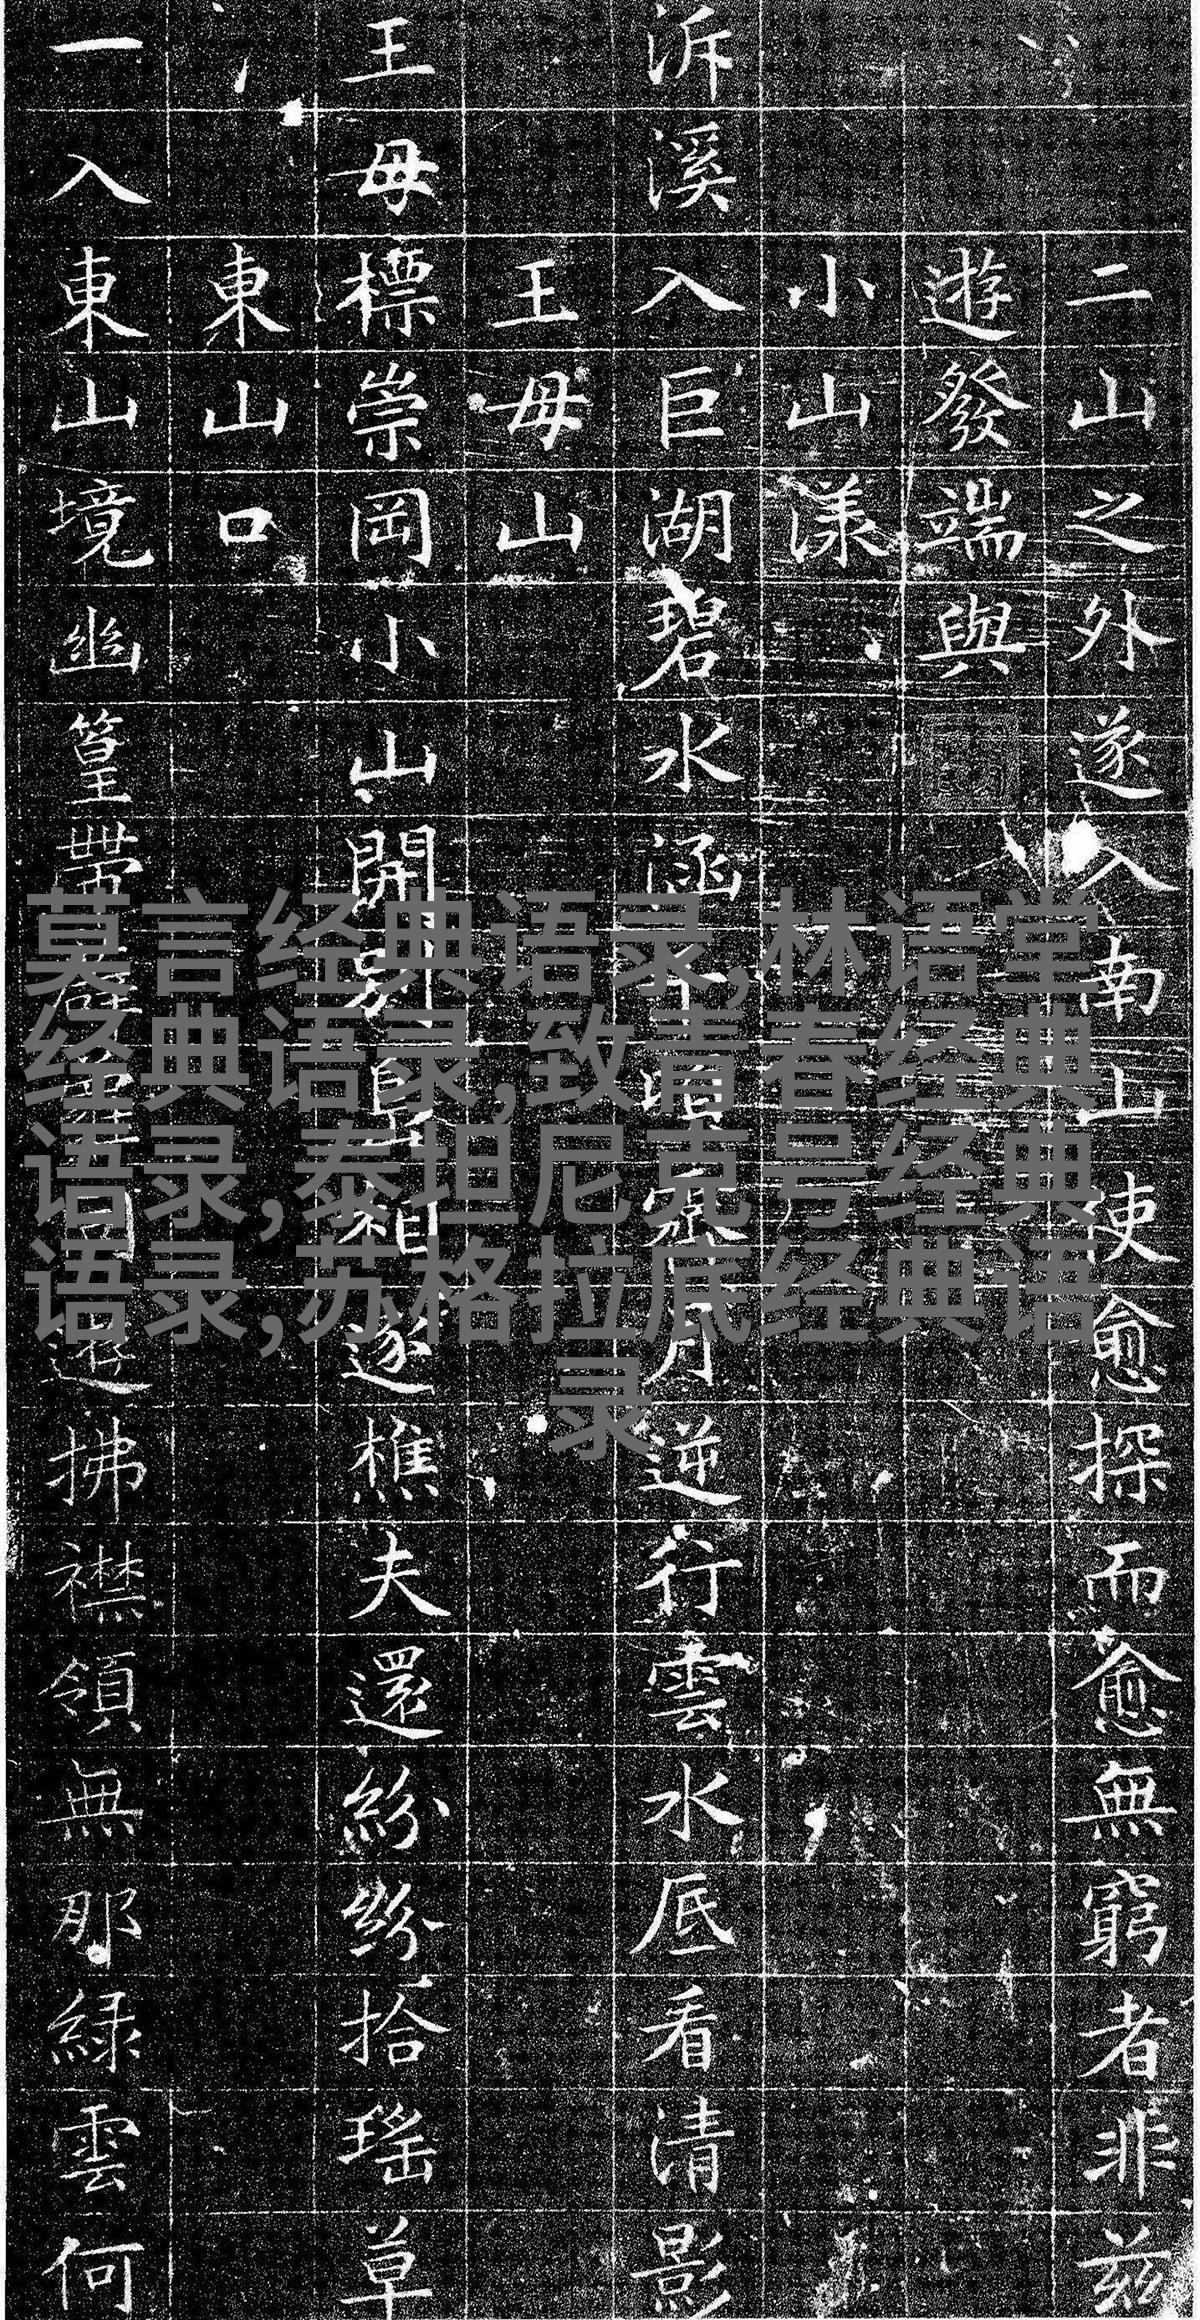 二山之外遂入南山使愈探而愈無窮者非茲
遊發端與
小山漾
泝溪入巨湖碧水涵月逆行雲水底看清影
王母山
王母標崇岡小山開別相遂樵夫還紛紛拾瑤草
東山口
一入東山境幽篁帶拂襟領無那綠雲何
莫言经典语录,林语堂
经典语录,致青春经典
语录,泰坦尼克号经典
语录,苏格拉底经典语
录